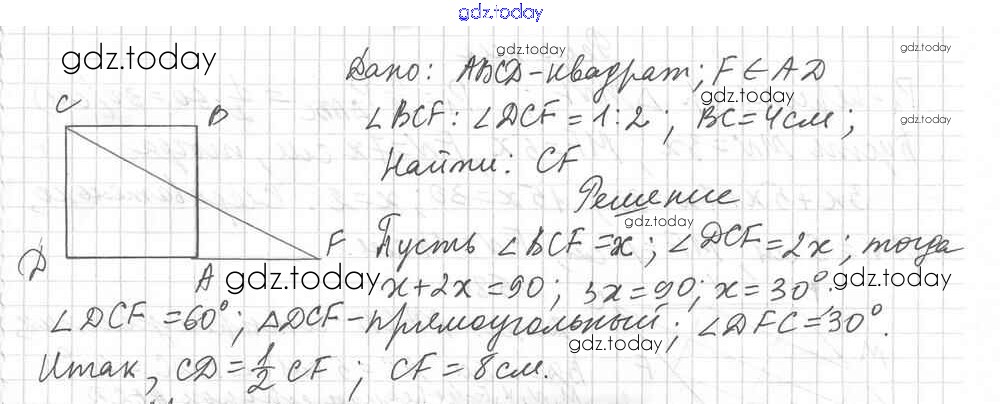 gdz.today
gdz.today
gdz.today
gdz.today
Дано: ABCD-квадрат; F∈AD
gdz.today
C
B
∠BCF : ∠DCF = 1:2 ; BC=4см ;
gdz.today
Найти: CF
Решение
gdz.today
Пусть ∠BCF=x ; ∠DCF=2x; тогда
D
A
F
gdz.today
x+2x=90; 3x=90; x=30°.
gdz.today
∠DCF=60°; △DCF-прямоугольный; ∠DFC=30°.
gdz.today
Итак, CD=1/2 CF ; CF=8см.